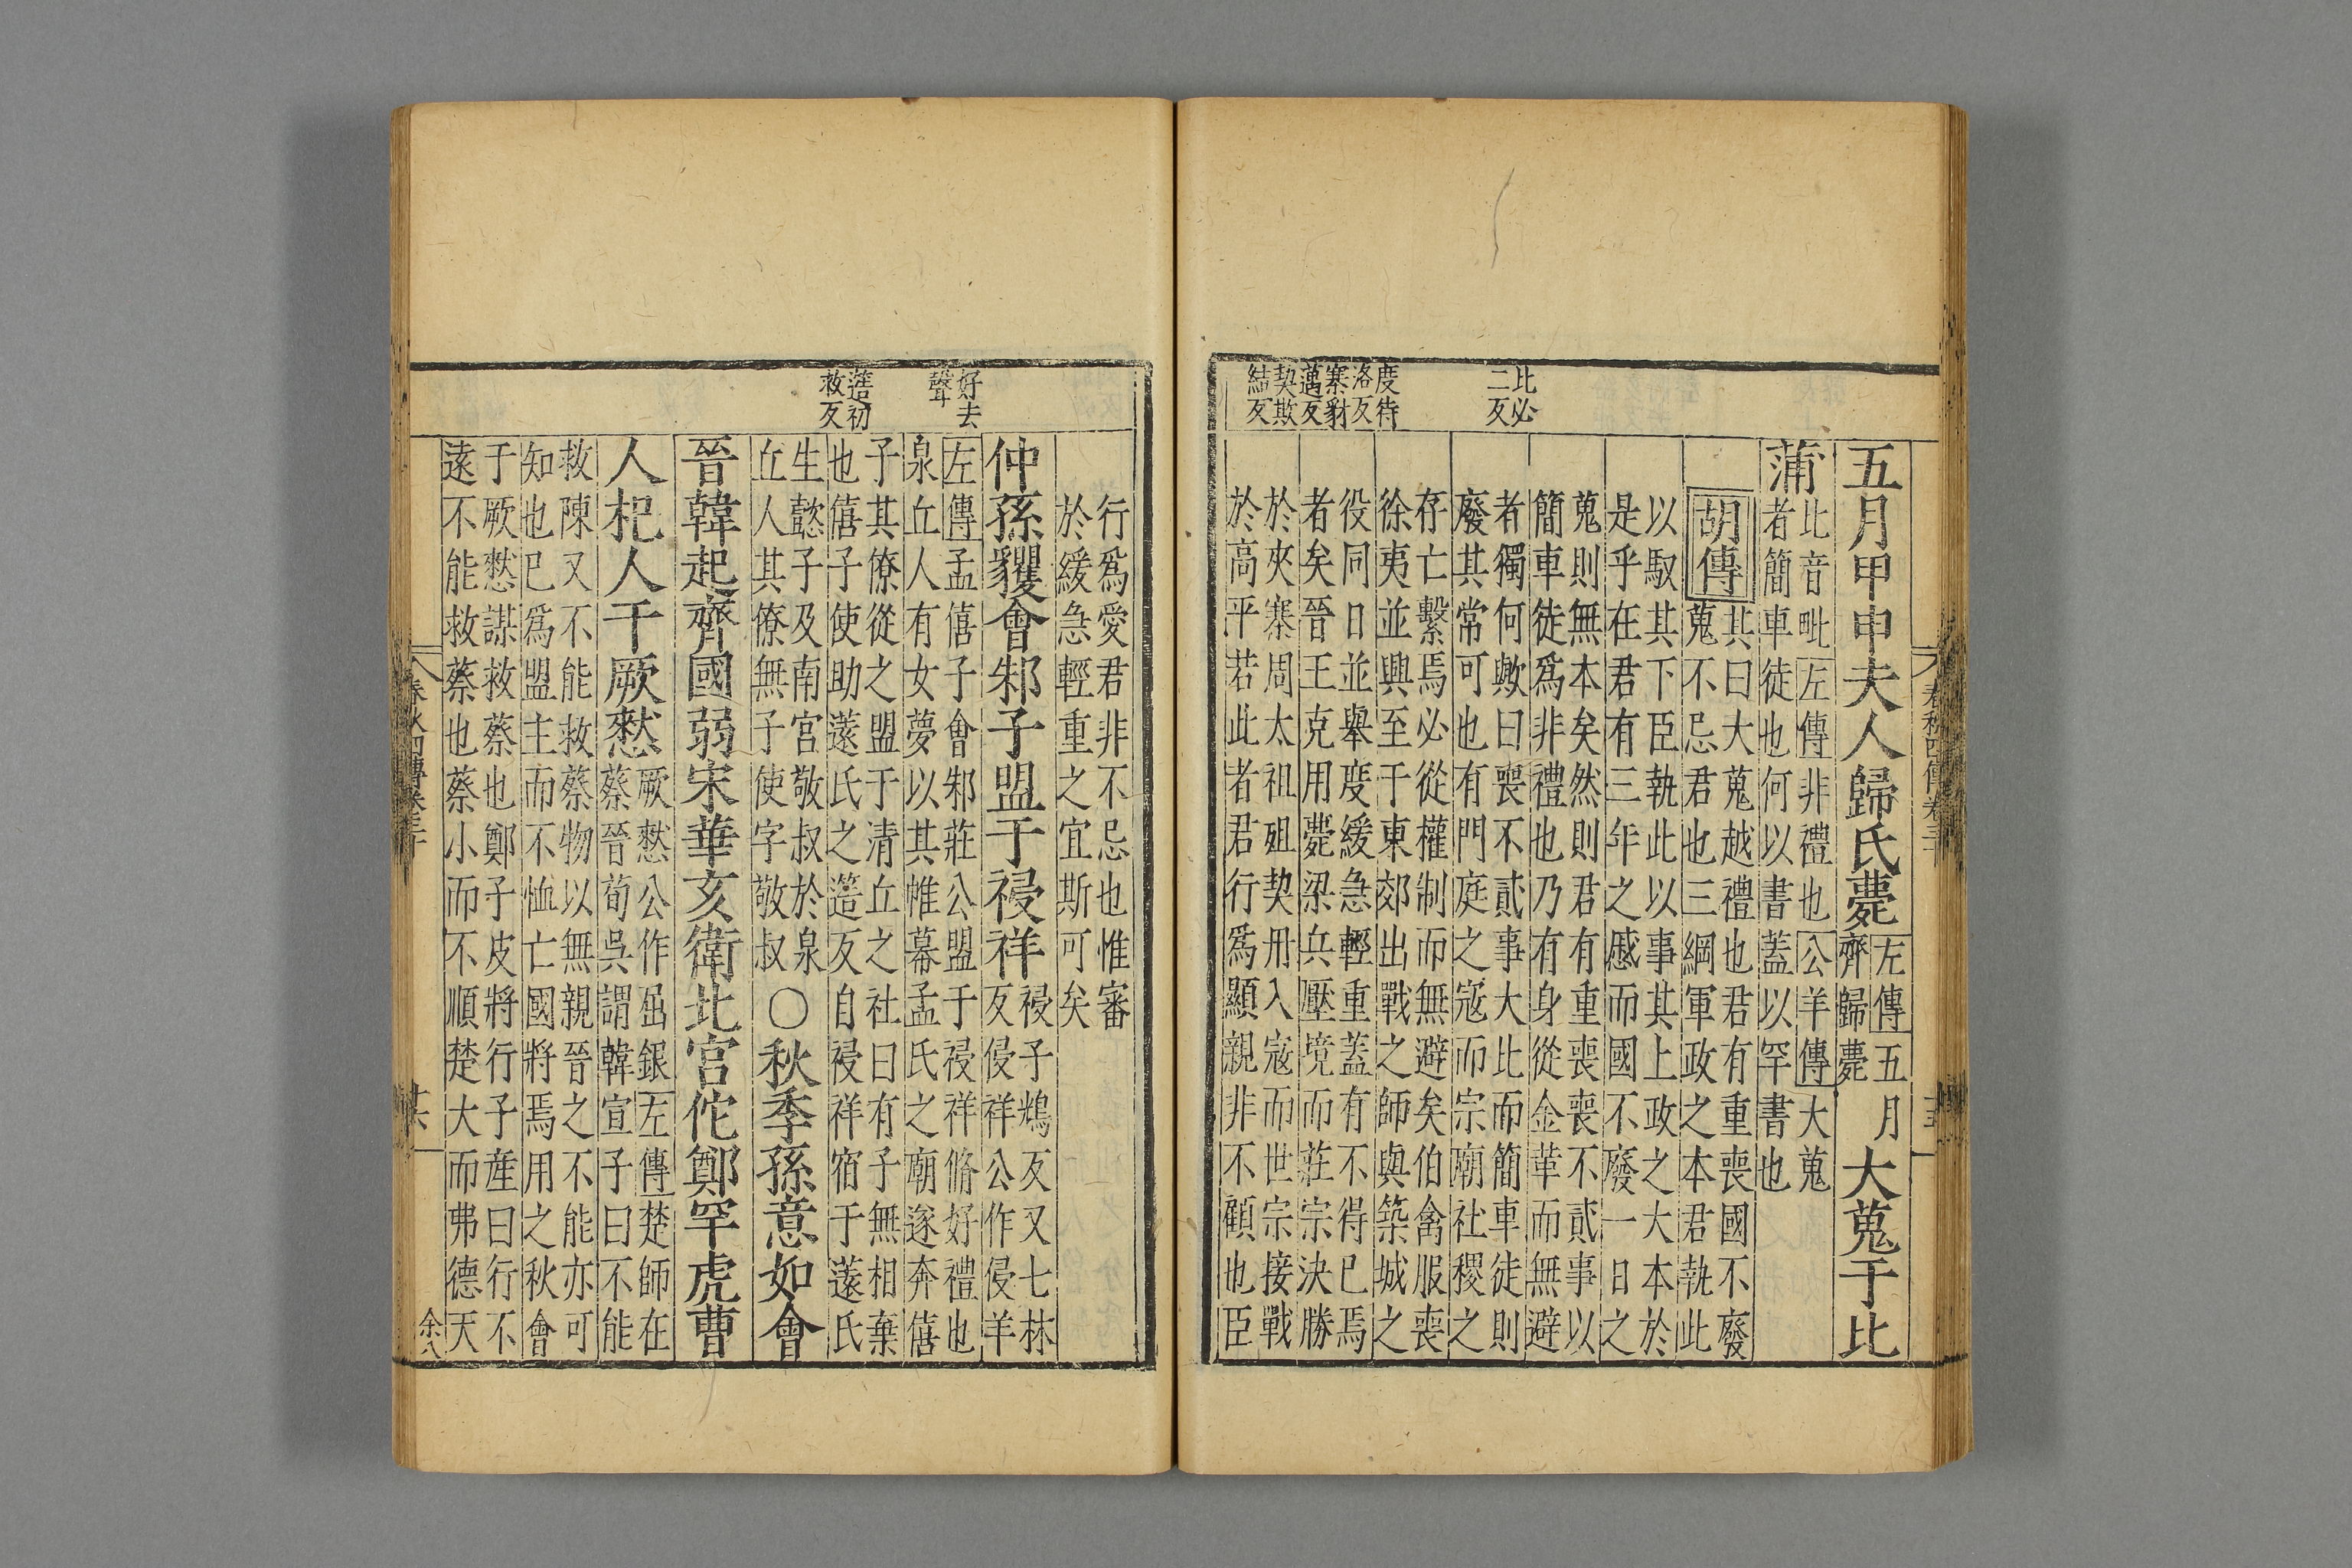 比必
二反
度待
洛反
寨豺
邁反
契欺
結反
五月甲申夫人歸氏薨
左傳五月
齊歸薨
大蒐于比
蒲
比音毗左傳非禮也公羊傳大蒐
者簡車徒也何以書蓋以罕書也
胡傳
其曰大蒐越禮也君有重喪國不廢
蒐不忌君也三綱軍政之本君執此
以馭其下臣執此以事其上政之大本於
是乎在君有三年之慼而國不廢一日之
蒐則無本矣然則君有重喪喪不貳事以
簡車徒爲非禮也乃有身從金革而無避
者獨何歟曰喪不貳事大比而簡車徒則
廢其常可也有門庭之寇而宗廟社稷之
存亡繫焉必從權制而無避矣伯禽服喪
徐夷並興至于東郊出戰之師與築城之
役同日並舉度緩急輕重蓋有不得已焉
者矣晉王克用薨梁兵壓境而莊宗決勝
於夾寨周太祖殂契丹入寇而世宗接戰
於高平若此者君行爲顯親非不顧也臣
春秋四傳卷三十
十五
好去
聲
簉初
救反
行爲愛君非不忌也惟審
於緩急輕重之宜斯可矣
仲孫貜會邾子盟于祲祥
祲子鴆反又七林
反侵祥公作侵羊
左傳孟僖子會邾莊公盟于祲祥脩好禮也
泉丘人有女夢以其帷幕孟氏之廟遂奔僖
子其僚從之盟于清丘之社曰有子無相棄
也僖子使助薳氏之簉反自祲祥宿于薳氏
生懿子及南宮敬叔於泉
丘人其僚無子使字敬叔
○秋季孫意如會
晉韓起齊國弱宋華亥衛北宮佗鄭罕虎曹
人杞人于厥憖
厥憖公作屈銀左傳楚師在
蔡晉荀吳謂韓宣子曰不能
救陳又不能救蔡物以無親晉之不能亦可
知也已爲盟主而不恤亡國將焉用之秋會
于厥憖謀救蔡也鄭子皮將行子產曰行不
遠不能救蔡也蔡小而不順楚大而弗德天
春秋四傳卷三十
十六
余八